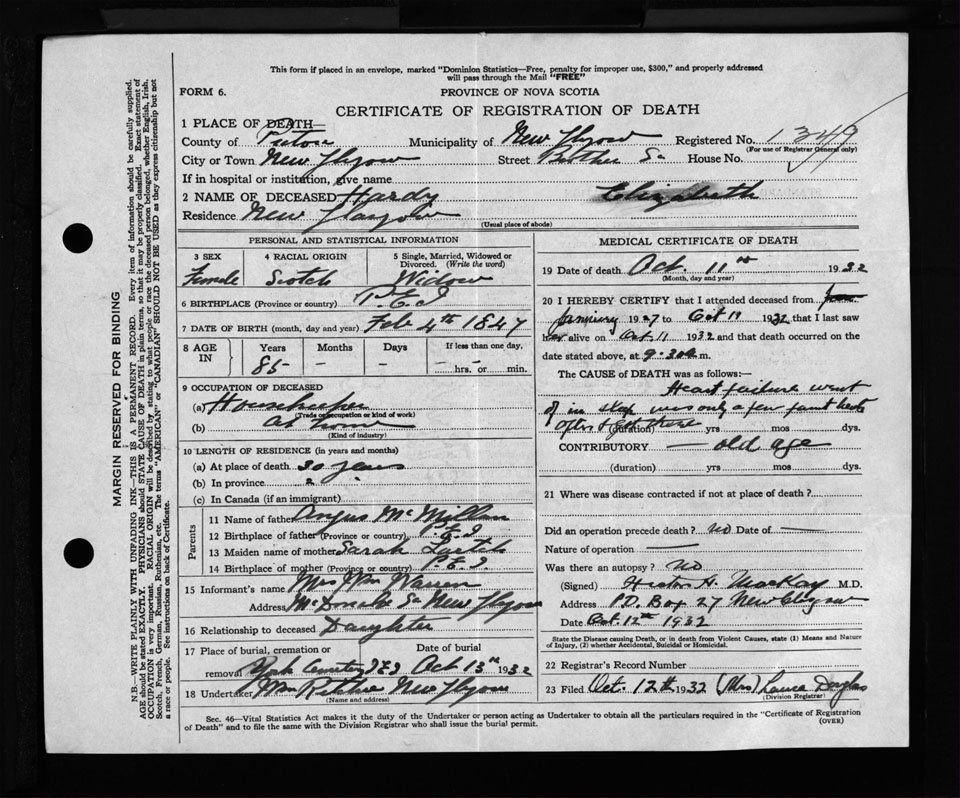 This form if placed in an envelope, marked "Dominion Statistics—Free, penalty for improper use, $300," and properly addressed
will pass through the Mail "FREE"
FORM 6.
PROVINCE OF NOVA SCOTIA
CERTIFICATE OF REGISTRATION OF DEATH
1 PLACE OF DEATH—
County of Pictou Municipality of New Glasgow Registered No. 1349
(For use of Registrar General only)
City or Town New Glasgow Street House No.
If in hospital or institution, give name
2 NAME OF DECEASED Hardy Elizabeth
Residence New Glasgow
(Usual place of abode)
PERSONAL AND STATISTICAL INFORMATION
3 SEX 4 RACIAL ORIGIN 5 Single, Married, Widowed or
Divorced. (Write the word)
Female Scotch Widow
6 BIRTHPLACE (Province or country) P.E.I
7 DATE OF BIRTH (month, day and year) Feb 4th 1847
8 AGE IN Years Months Days If less than one day,
85 — — — hrs. or — min.
9 OCCUPATION OF DECEASED
(a) Housekeeper
(Trade occupation or kind of work)
(b) At home
(Kind of industry)
10 LENGTH OF RESIDENCE (in years and months)
(a) At place of death 30 years
(b) In province
(c) In Canada (if an immigrant)
Parents
11 Name of father Angus McMillan
12 Birthplace of father (Province or country) P.E.I
13 Maiden name of mother Sarah
14 Birthplace of mother (Province or country) P.E.I.
15 Informant's name Mrs Wm Warren
Address McDonald St New Glasgow
16 Relationship to deceased Daughter
17 Place of burial, cremation or Date of burial
removal York Cemetery PEI Oct 13th 1932
18 Undertaker Wm Ritchie New Glasgow
(Name and address)
MEDICAL CERTIFICATE OF DEATH
19 Date of death Oct. 11th 1932
(Month, day and year)
20 I HEREBY CERTIFY that I attended deceased from
January 1927 to Oct 11 1932 that I last saw
her alive on Oct 11 1932 and that death occurred on the
date stated above, at 9.30 a m.
The CAUSE of DEATH was as follows:—
Heart failure went
off in sleep was only a few faint beats
after I got there
(duration) yrs mos dys.
CONTRIBUTORY — old age
(duration) yrs mos dys.
21 Where was disease contracted if not at place of death?
Did an operation precede death? No Date of —
Nature of operation —
Was there an autopsy? No
(Signed) H. MacKay M.D.
Address P.O. Box 27 New Glasgow
Date Oct. 12th 1932
State the Disease causing Death, or in death from Violent Causes, state (1) Means and Nature
of Injury, (2) whether Accidental, Suicidal or Homicidal.
22 Registrar's Record Number
23 Filed Oct. 12th 1932 (Mrs) Laura Douglas
(Division Registrar)
Sec. 46—Vital Statistics Act makes it the duty of the Undertaker or person acting as Undertaker to obtain all the particulars required in the "Certificate of Registration
of Death" and to file the same with the Division Registrar who shall issue the burial permit. (OVER)
MARGIN RESERVED FOR BINDING
N.B.—WRITE PLAINLY WITH UNFADING INK—THIS IS A PERMANENT RECORD. Every item of information should be carefully supplied.
AGE should be stated EXACTLY. PHYSICIANS should STATE CAUSE OF DEATH in plain terms, so that it may be properly classified. Exact statement of
OCCUPATION is very important. RACIAL ORIGIN will be described by stating to what people or race the deceased person belonged, whether English, Irish,
Scotch, French, German, Russian, Ruthenian, etc. The terms "AMERICAN" or "CANADIAN" SHOULD NOT BE USED as they express citizenship but not
a race or people. See instructions on back of Certificate.